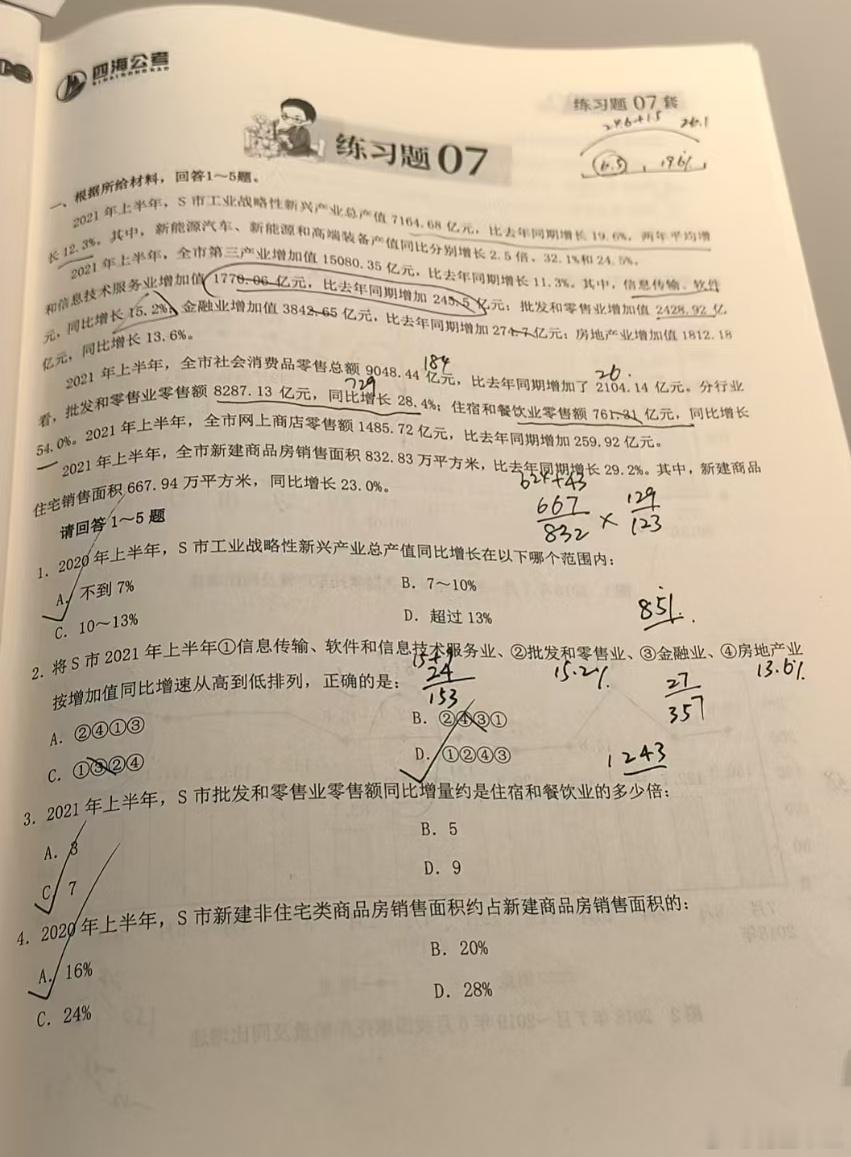 四海公考
练习题 07 套
24.6+1.5 26.1
6.5, 19.6%
练习题 07
一、根据所给材料，回答1～5题。
2021 年上半年，S 市工业战略性新兴产业总产值 7164.68 亿元，比去年同期增长 19.6%，两年平均增
长 12.3%。其中，新能源汽车、新能源和高端装备产值同比分别增长 2.5 倍、32.1%和 24.5%。
2021 年上半年，全市第三产业增加值 15080.35 亿元，比去年同期增长 11.3%。其中，信息传输、软件
和信息技术服务业增加值 1770.06 亿元，比去年同期增加 245.5 亿元；批发和零售业增加值 2428.92 亿
元，同比增长 15.2%；金融业增加值 3842.65 亿元，比去年同期增加 274.7 亿元；房地产业增加值 1812.18
亿元，同比增长 13.6%。
184
26.
2021 年上半年，全市社会消费品零售总额 9048.44 亿元，比去年同期增加了 2104.14 亿元。分行业
729
看，批发和零售业零售额 8287.13 亿元，同比增长 28.4%；住宿和餐饮业零售额 761.31 亿元，同比增长
54.0%。2021 年上半年，全市网上商店零售额 1485.72 亿元，比去年同期增加 259.92 亿元。
2021 年上半年，全市新建商品房销售面积 832.83 万平方米，比去年同期增长 29.2%。其中，新建商品
住宅销售面积 667.94 万平方米，同比增长 23.0%。
624+43
667 129
832 × 123
请回答 1～5 题
1. 2020 年上半年，S 市工业战略性新兴产业总产值同比增长在以下哪个范围内：
A. 不到 7% B. 7～10%
C. 10～13% D. 超过 13%
85%.
2. 将 S 市 2021 年上半年①信息传输、软件和信息技术服务业、②批发和零售业、③金融业、④房地产业
按增加值同比增速从高到低排列，正确的是：
24
153
15.2%
27
357
13.6%
A. ②④①③ B. ②④③①
C. ①③②④ D. ①②④③
1243
3. 2021 年上半年，S 市批发和零售业零售额同比增量约是住宿和餐饮业的多少倍：
A. 3 B. 5
C. 7 D. 9
4. 2020 年上半年，S 市新建非住宅类商品房销售面积约占新建商品房销售面积的：
A. 16% B. 20%
C. 24% D. 28%